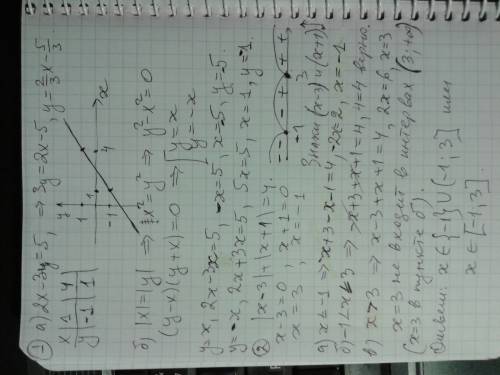 ① а) 2x-3y=5, ⇒ 3y=2x-5, y=2/3x-5/3
x | 1 | 4
y | -1 | 1
1
-1
4
x
б) |x|=|y| ⇒ x²=y² ⇒ y²-x²=0
(y-x)(y+x)=0 ⇒ [y=x
y=-x
y=x, 2x-3x=5, -x=5, x=-5, y=-5.
y=-x, 2x+3x=5, 5x=5, x=1, y=-1.
② |x-3|+|x+1|=4.
x-3=0, x+1=0
x=3, x=-1
-- -+ ++
-1 3
Знаки (x-3) и (x+1)↑
а) x≤-1 ⇒ -x+3-x-1=4, -2x=2, x=-1
б) -1<x≤3 ⇒ -x+3+x+1=4, 4=4 верно.
в) x>3 ⇒ x-3+x+1=4, 2x=6, x=3
x=3 не входит в интервал (3;+∞)
(x=3 в пункте б).
Ответ: x∈{-1}∪(-1;3] или
x∈[-1;3]